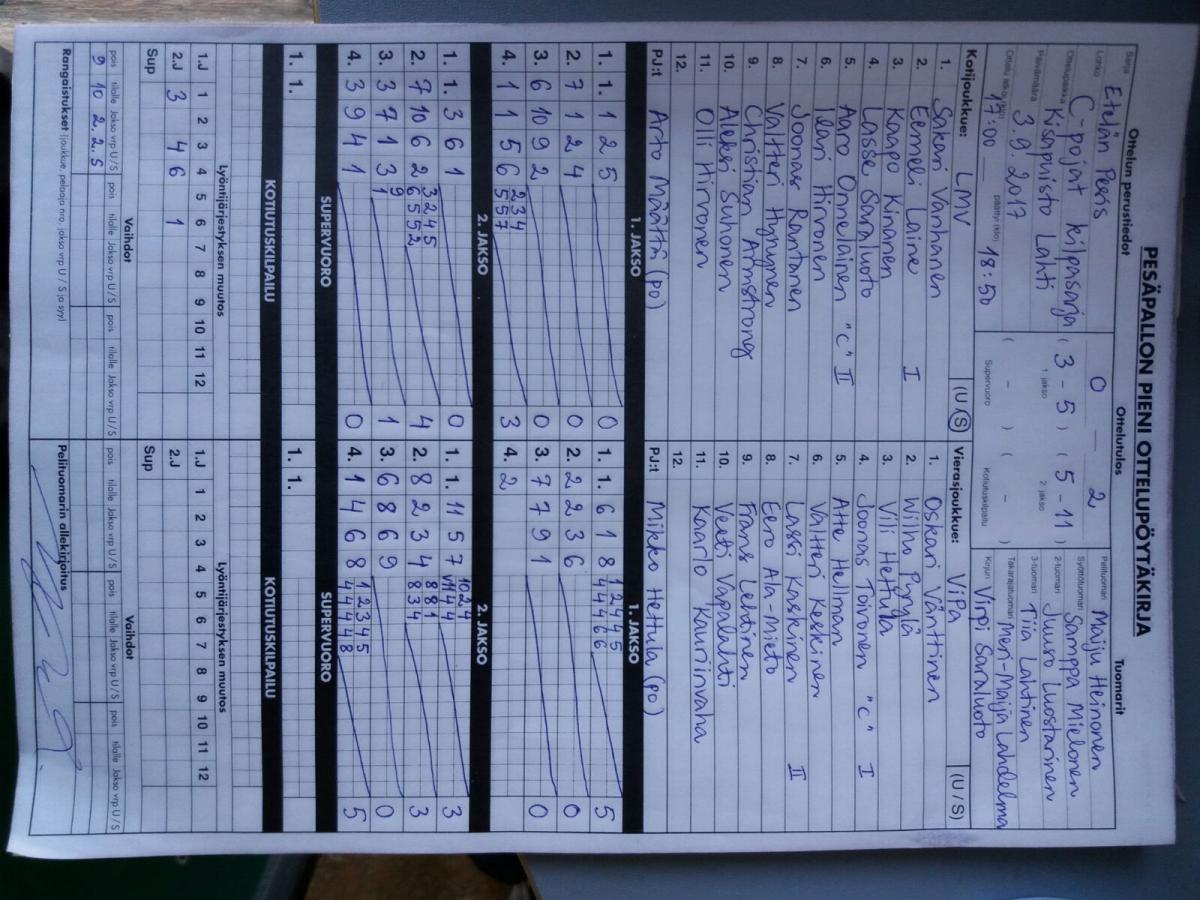 PESÄPALLON PIENI OTTELUPÖYTÄKIRJA
Ottelun perustiedot
Ottelutulos
Tuomarit
Sarja Etelän Pesis
Lohko C-pojat kilpasarja
Ottelupaikka Kisapuisto Lahti
Päivämäärä 3.9.2017
17:00 päättyi (klo) 18:50
0 — 2
( 3 - 5 ) ( 5 - 11 )
1. jakso 2. jakso
( - ) ( - )
Supervuoro Kotiutuskilpailu
Pelituomari Maiju Heinonen
Syöttötuomari Samppa Mielonen
2-tuomari Juuso Luostarinen
3-tuomari Tiia Lahtinen
Takarajatuomari Meri-Maija Lahdelma
Kirjuri Virpi Saraluoto
Kotijoukkue: LMV (U/S)
1. Sakari Vanhanen
2. Eemeli Laine I
3. Kaapo Kinanen
4. Lasse Saraluoto
5. Aaro Onnelainen "C" II
6. Ilari Hirvonen
7. Joonas Rantanen
8. Valtteri Hynynen
9. Christian Armstrong
10. Aleksi Suhonen
11. Olli Hirvonen
12.
PJ:t Arto Määttä (po)
Vierasjoukkue: ViPa (U / S)
1. Oskari Vänttinen
2. Wilho Pyrylä
3. Vili Hettula
4. Joonas Toivonen "C" I
5. Atte Hellman
6. Valtteri Kaskinen
7. Lassi Kaskinen II
8. Eero Ala-Mieto
9. Frans Lehtinen
10. Veeti Vapalahti
11. Kaarlo Kauriinvaha
12.
PJ:t Mikko Hettula (po)
1. JAKSO
1. JAKSO
1. 1. 1 2 5 0
2. 7 1 2 4 0
3. 6 10 9 2 0
4. 1 1 5 6 3
2 3 4
5 5 7
1. 1. 6 1 8 5
1 2 4 4 5
4 4 4 6 6
2. 2 2 3 6 0
3. 7 7 9 1 0
4. 2
2. JAKSO
2. JAKSO
1. 1. 3 6 1 0
2. 7 10 6 2 4
3 2 4 5
6 5 5 2
3. 3 7 1 3 1
9
1
4. 3 9 4 1 0
1. 1. 11 5 7 3
10 2 4
11 4 4
2. 8 2 3 4 3
8 8 1
8 3 4
3. 6 8 6 9 0
4. 1 4 6 8 5
1 2 3 4 5
4 4 4 4 8
SUPERVUORO
SUPERVUORO
KOTIUTUSKILPAILU
KOTIUTUSKILPAILU
1. 1.
1. 1.
Lyöntijärjestyksen muutos
Lyöntijärjestyksen muutos
1.J 1 2 3 4 5 6 7 8 9 10 11 12
2.J 3 4 6 1
Sup
1.J 1 2 3 4 5 6 7 8 9 10 11 12
2.J
Sup
Vaihdot
Vaihdot
pois tilalle Jakso vrp U / S pois tilalle Jakso vrp U / S pois tilalle Jakso vrp U / S
9 10 2. 2. S
pois tilalle Jakso vrp U / S pois tilalle Jakso vrp U / S pois tilalle Jakso vrp U / S
Rangaistukset (joukkue, pelaaja nro, jakso vrp U / S ja syy)
Pelituomarin allekirjoitus